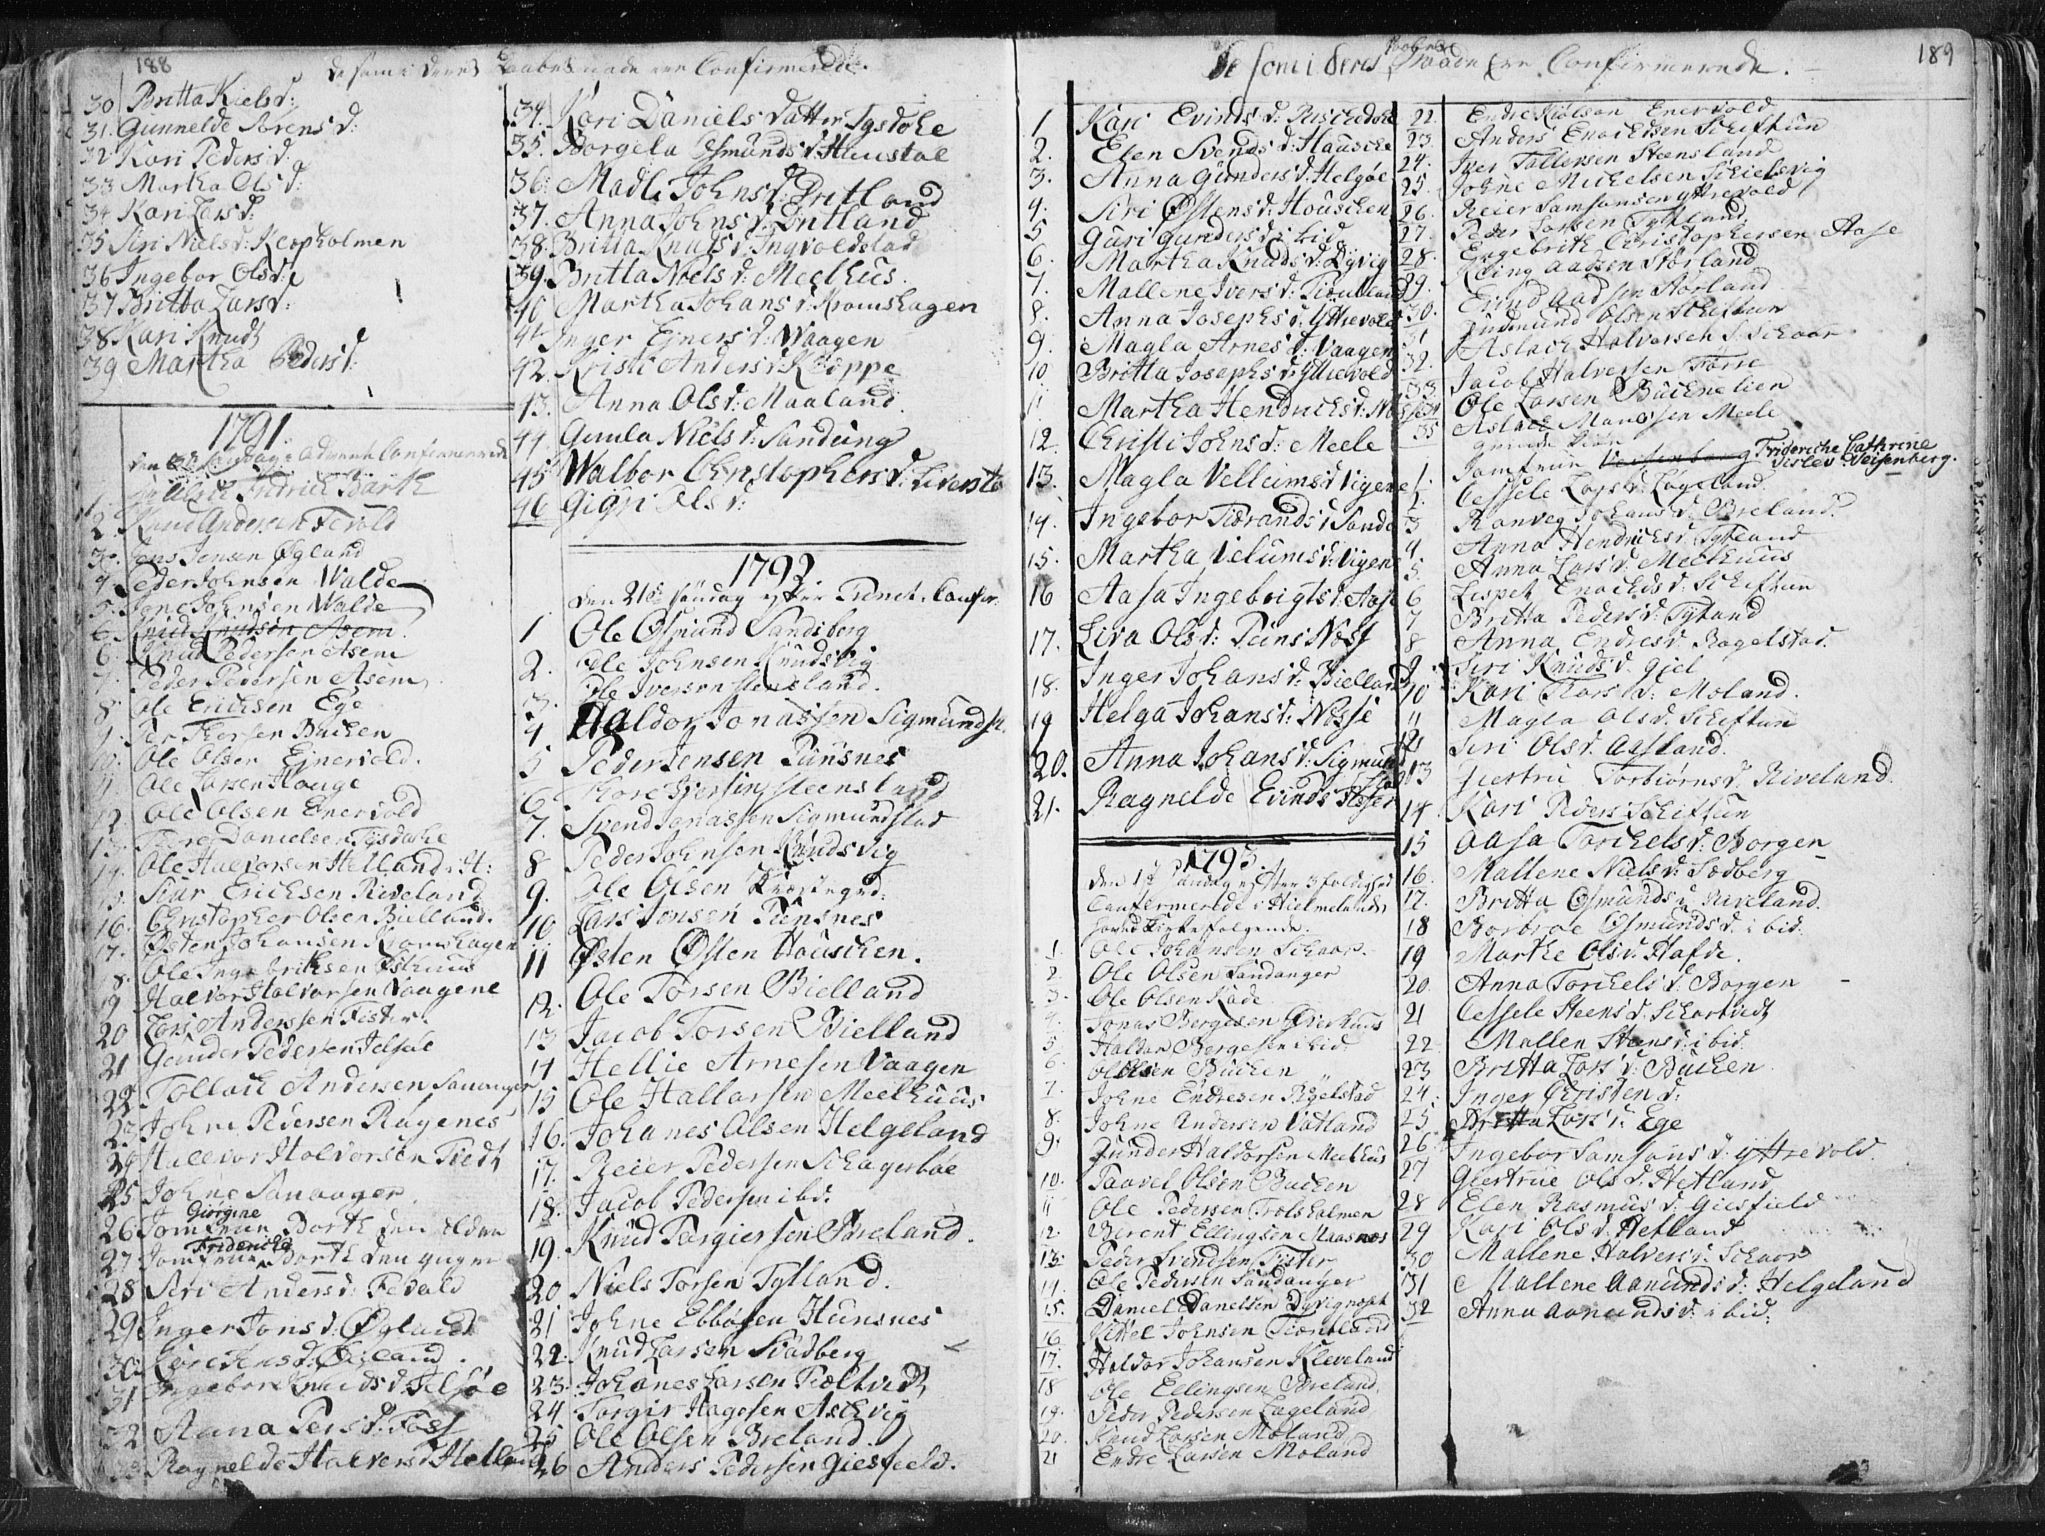 188
de som i deres Daabes naade ere Confirmerede.
30 Britta Nielsd:
31. Gunnelde Sørensd:
32 Kari Pedersd:
33 Martha Olsd:
34 Kari Larsd:
35 Siri Nielsd: Kepholmen
36 Ingebor Olsd:
37 Britta Larsd:
38 Kari Knuds
39 Martha Pedersd:
1791.
Søndag i Advent Confirmerede
1. Fredrich Barth
2. Knud Andersen Fevold
3. Jens Jensen Øgland
4. Peder Johnsen Walde
5. Jone Johnsen Walde
6. Knud Knudsøn Asem
6. Knud Pedersen Asem
7. Peder Pedersen Asem
8 Ole Ericksen Ege
9. Per Thorsen Buchen
10. Ole Olsen Ejnervold.
11 Ole Larsen Houge
12 Ole Olsen Enervold
13. Tore Danielsen Tysdahle
14. Ole Halvorsen Helland: H:
15. Siar Ericksen Riveland
16. Christopher Olsen Bielland.
17. Østen Johansen Kromshagen
18. Ole Ingebriktsen Østhuus
19 Halvor Halvorsen Vaagene
20 Lars Anderssen Fister.
21 Gunder Pedersen Jelsøe
22. Tollach Andersen Sananger
23. Johne Pedersen Ragenes
24 Hallvor Halvorsen Tvedt
25 Johne Sananger.
Giørgine
26 Jomfrue Barth den eldre
Fridericha
27 Jomfrue Barth den yngre
28 Siri Andersd: Fevold
29 Inger Jonsd: Øgland
30. Kari Jensd: Øgland.
31 Ingebor Knudsd: Jelsøe
32 Anna Persd: Foss
33 Ragnelde Halversd Helland
34. Kari Daniels datter Tysdahle
35. Borgela Osmundsd: Hunstal
36: Madli Johnsd: Dritland
37. Anna Johnsd: Dritland
38. Britta Knudsd: Ingvoldstad
39. Britta Noelsd: Meelhus
40 Martha Johansd: Kromshagen
41 Inger Ejnersd: Waagen
42. Kristi Andersd Kloppe
43. Anna Olsd: Maaland.
44 Gunla Nielsd: Sandung
45 Walbor Christophersd: Liverste
46 Gigri Olsd:
1792
den 21de søndag efter Trinit. Confir:
1 Ole Osmund Sandsberg
2. Ole Johnsen Knudsvig
3. Ole Iversen Steensland.
4 Haldor Jonassen Sigmundst.
5 Peder Jensen Punsnes
6 Tore Iversen Steensland
7. Svend Jonassen Sigmundstad
8 Peder Johnsen Knudsvig
9. Ole Olsen
10 Lars Jensen Punsnes
11 Østen Østen Houschen.
12. Ole Torsen Bielland
13 Jacob Torsen Bielland
14 Hellie Arnesen Vaagen
15 Ole Hallorsen Meelhuus
16. Johanes Olsen Helgeland
17. Reier Pedersen Schagerbøe
18. Jacob Pedersen ibd.
19. Knud Torgiersen Breland.
20 Niels Torsen Tytland.
21 Johne Ebbøsen Hunsnes
22. Knud Larsen Svadberg
23. Johanes Larsen Tveltvedt
24 Torgir Hagesen Aschvig
25 Ole Olsen Breland.
26 Anders Pedersen Giesfield.
189
De som i deres Daabes Naade Ere Confirmerede.
1 Kari Evindsd:
2. Elen Svendsd: Hausche
3. Anna Gundersd: Helgøe
4. Siri Østensd: Houschen
5 Guri Gundersd: ibid.
6. Martha Knudsd: Dyvig
7. Mallene Iversd:
8. Anna Josephsd: Yttrevold
9. Magla Arnesd: Vaagen
10 Britta Josephsd: Yttrevold
11. Martha Hendrichsd: Nesse
12. Christi Johnsd: Meele
13. Magla Vellumsd Vigene
14. Ingebor Tarandsd Sande
15. Martha Velumsd: Vigen
16 Aasa Ingebrigtsd: Aase
17. Liva Olsd: Puns Næss
18. Inger Johansd: Bielland
19 Helga Johansd: Nesse
20. Anna Johansd: Sigmundstad
21. Ragnelde Evinds Foss
1793.
Den 1te Søndag efter 3foldighed
Confirmerede i Hielmelands
hoved Kirke følgende.
1. Ole Johansen Schaar.
2. Ole Olsen Sandanger
3. Ole Olsen Kade
4. Jonas Børgesen Øverhuus
5. Haldor Børgesen ibid.
6. Ole Olsen Buchen
7. Johne Endresen Rygelstad
8. Johne Andersen Vatland
9. Gunder Haldorsen Meelhus
10. Paavel Olsen Buchen
11 Ole Pedersen Trolsholmen
12. Berent Ellingsen Maasnæs
13. Peder Svendsen Fister
14. Ole Pedersen Sandanger
15. Daniel Danelsen Dyvignesset
16. Kittel Johnsen
17. Haldor Johansen Kleveland
18 Ole Ellingsen Breland.
19. Peder Pedersen Lageland
20. Knud Larsen Moland
21 Endre Larsen Moland
22. Endre Enervold
23. Anders Enochsen Schiftun
24. Iver Tallevsen Steensland
25. Johne Michelsen Schielsvig
26. Reier Samsonsen Yttrevold
27. Peder Larsen Tytland.
Engebreth Christophersen Aase
28. King Aadsen Størland
29. Evind Aadsen Størland
30. Gudmund Olsen Schiftun
31 Aslach Halversen S. Schaar
32. Jacob Halversen Førre
33. Ole Larsen Buchnelien
34 Aslach Maursen Meele
35
1. Jomfrue Friderche Cathrine Sirlev Weisenberg.
1. Cessele Larsd: Lageland
2. Ranveg Johansd: Breland.
3 Anna Hendrichsd: Tytland
4. Anna Larsd: Meelhuus
5. Lispet Enochsd: Schiftun
6 Britta Pedersd: Tytland
7
8 Anna Endresd: Ragelstad.
9 Siri Knudsd: Giel
10 Kari Larsd: Moland.
11 Magla Olsd: Schiftun
12 Siri Olsd: Aasland.
13 Giertru Torbiørnsd: Riveland.
14. Kari Peders Schiftun
15 Aasa Torchelsd: Borgen
16. Mallene Nielsd: Sedberg
17. Britta Osmundsd: Riveland.
18 Borbroe Osmundsd: i bid.
19 Marthe Olsd: Hafde.
20 Anna Torchelsd: Borgen
21 Cessele Steensd: Schartvedt
22 Mallen Steensd: i bid.
23 Britta Larsd: Buchen
24 Inger Christend:
25 Britta Larsd: Ege
26 Ingebor Samsonsd: Yttrevold.
27 Giertrue Olsd: Hetland
28 Elen Rasmusd: Giesfield
29 Kari Olsd: Hetland
30 Mallene Halversd: Schaar
31 Mallene Aamundsd: Helgeland
32 Anna Aamundsd: ibid: